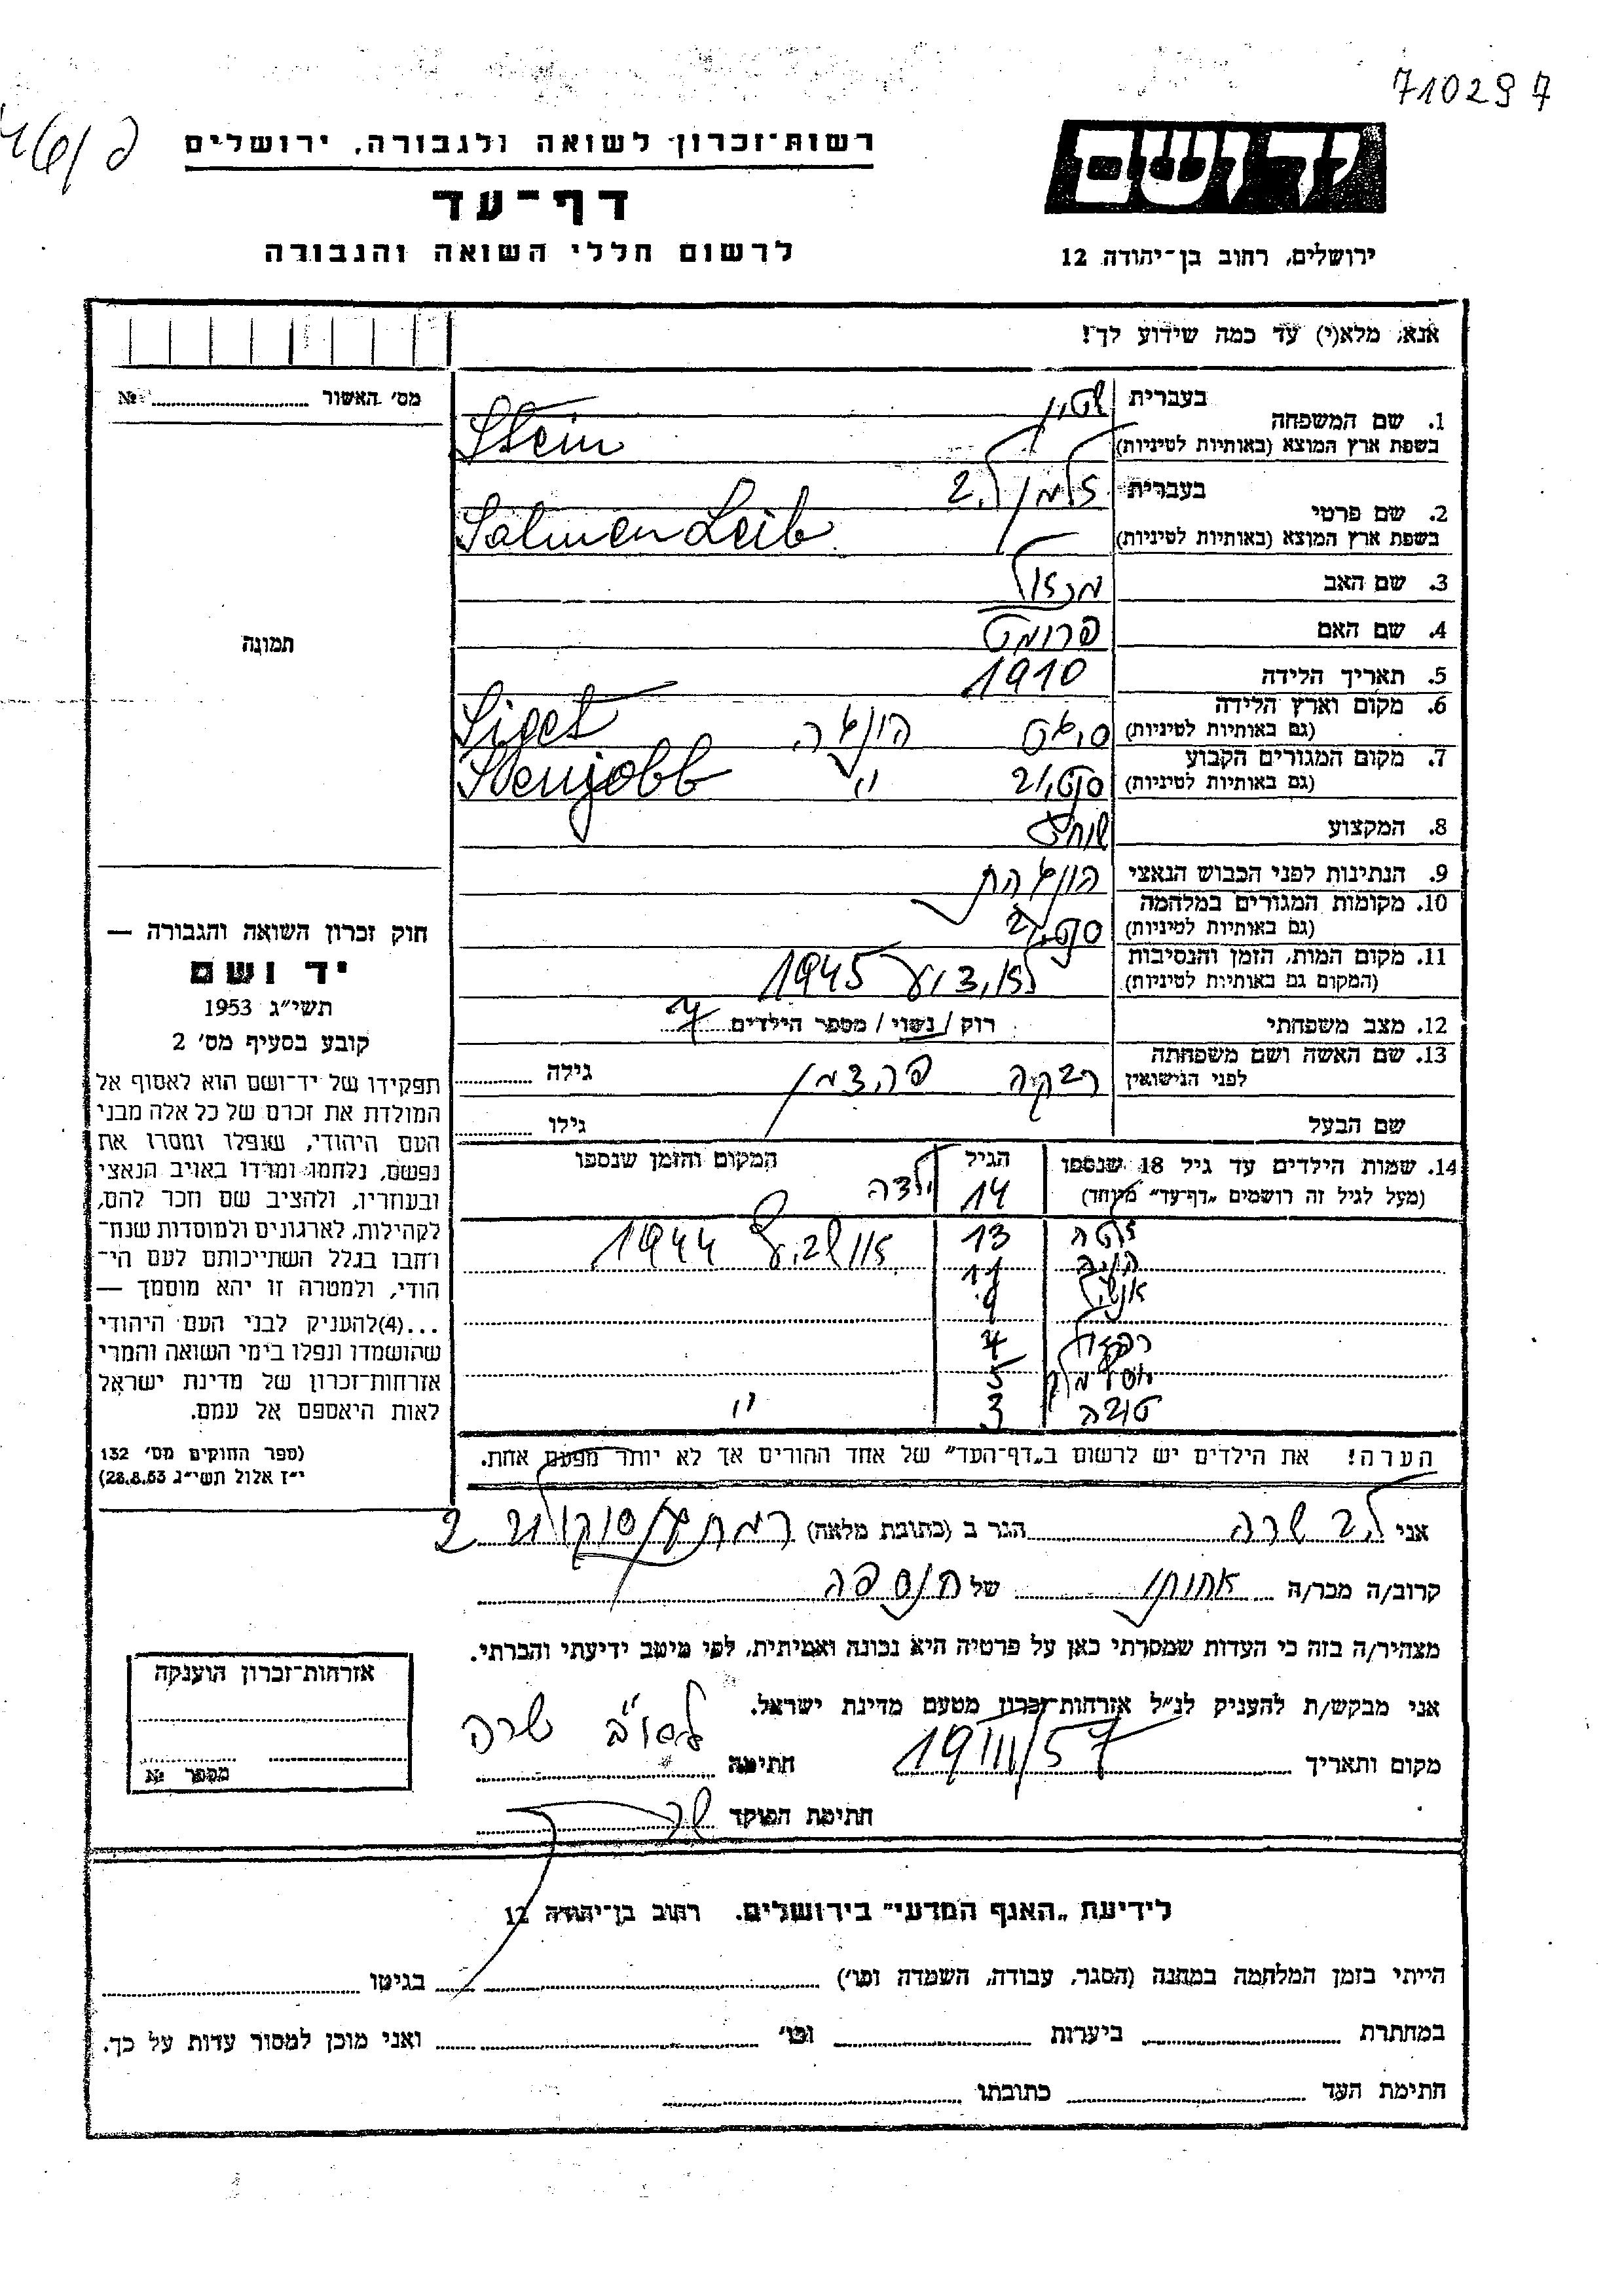 710297
רשות־זכרון לשואה ולגבורה, ירושלים
יד ושם
דף־עד
לרשום חללי השואה והגבורה
ירושלים, רחוב בן־יהודה 12
אנא, מלא(י) עד כמה שידוע לך!
מס׳ האשור № 
1. שם המשפחה
בעברית שטיין
בשפת ארץ המוצא (באותיות לטיניות) Stein
2. שם פרטי
בעברית זלמן ליב
בשפת ארץ המוצא (באותיות לטיניות) Salmen Leib
3. שם האב
4. שם האם פרומט
תמונה
5. תאריך הלידה 1910
6. מקום וארץ הלידה
(גם באותיות לטיניות) סיגט הונגריה Siget
7. מקום המגורים הקבוע
(גם באותיות לטיניות) " 
8. המקצוע שוחט
9. הנתינות לפני הכבוש הנאצי
10. מקומות המגורים במלחמה
(גם באותיות לטיניות)
11. מקום המות, הזמן והנסיבות
(המקום גם באותיות לטיניות) 1945
12. מצב משפחתי רוק / נשוי / מספר הילדים 7
13. שם האשה ושם משפחתה
לפני הנישואין רבקה גילה
שם הבעל גילו
14. שמות הילדים עד גיל 18 שנספו הגיל המקום והזמן שנספו
(מעל לגיל זה רושמים „דף־עד” מיוחד) 14 ילדה
13 1944
11
9
7
5
טובה 3 "
הערה! את הילדים יש לרשום ב„דף־העד” של אחד ההורים אך לא יותר מפעם אחת.
חוק זכרון השואה והגבורה —
יד ושם
תשי״ג 1953
קובע בסעיף מס׳ 2
תפקידו של יד־ושם הוא לאסוף אל
המולדת את זכרם של כל אלה מבני
העם היהודי, שנפלו ומסרו את
נפשם, נלחמו ומרדו באויב הנאצי
ובעוזריו, ולהציב שם וזכר להם,
לקהילות, לארגונים ולמוסדות שנח־
רחבו בגלל השתייכותם לעם הי־
הודי, ולמטרה זו יהא מוסמך —
...(4)להעניק לבני העם היהודי
שהושמדו ונפלו בימי השואה והמרי
אזרחות־זכרון של מדינת ישראל
לאות היאספם אל עמם.
(ספר החוקים מס׳ 132
י״ז אלול תשי״ג 28.8.53)
אני ליב שרה הגר ב (כתובת מלאה) 2
קרוב/ה מכר/ה של
מצהיר/ה בזה כי העדות שמסרתי כאן על פרטיה היא נכונה ואמיתית, לפי מיטב ידיעתי והכרתי.
אני מבקש/ת להעניק לנ״ל אזרחות־זכרון מטעם מדינת ישראל.
מקום ותאריך 19/III/57 חתימה שרה
חתימת הפוקד
אזרחות־זכרון הוענקה
מספר №
לידיעת „האגף המדעי” בירושלים. רחוב בן־יהודה 12
הייתי בזמן המלחמה במחנה (הסגר, עבודה, השמדה וכו׳) בגיטו
במחתרת ביערות וכו׳ ואני מוכן למסור עדות על כך.
חתימת העד כתובתו